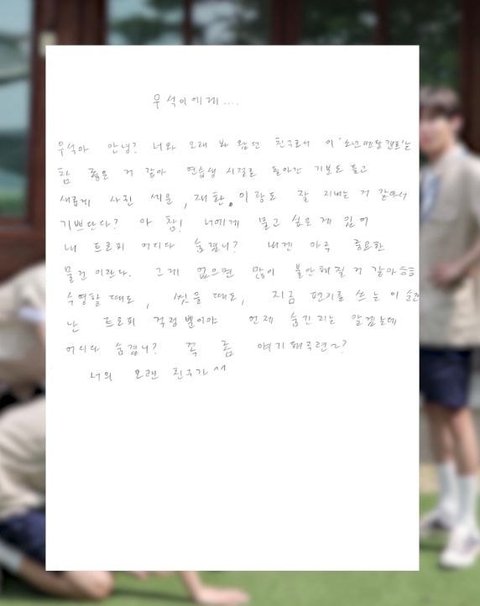 우석이에게....
우석아 안녕? 너와 오래 봐 왔던 친구로서 이 '소년판타지'는
참 좋은 거 같아 연습생 시절로 돌아간 기분도 들고
새롭게 사귄 세운, 재환, 이랑도 잘 지내는 거 같아서
기쁘단다? 아 참! 너에게 묻고 싶은 게 있어
내 트로피 어디다 숨겼니? 나에겐 아주 중요한
물건이란다. 그게 없으면 많이 불안해질 거 같아
수영할 때도, 씻을 때도, 지금 편지를 쓰는 이 순간
난 트로피 걱정뿐이야 언제 숨긴지는 알겠는데
어디다 숨겼니? 꼭 좀 얘기해주련~?
너의 오랜 친구가^^